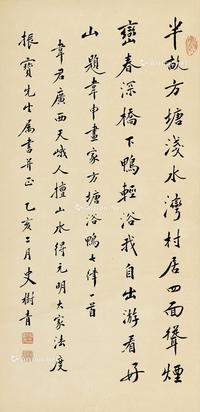 半畝方塘淺水灣村居四面聳煙
巒春深橋下鴨輕浴我自出游看好
山 題韋申畫家方塘浴鴨七律一首
韋君廣西天峨人擅山水得元明大家法度
振寶先生屬書并正 乙亥二月史樹青